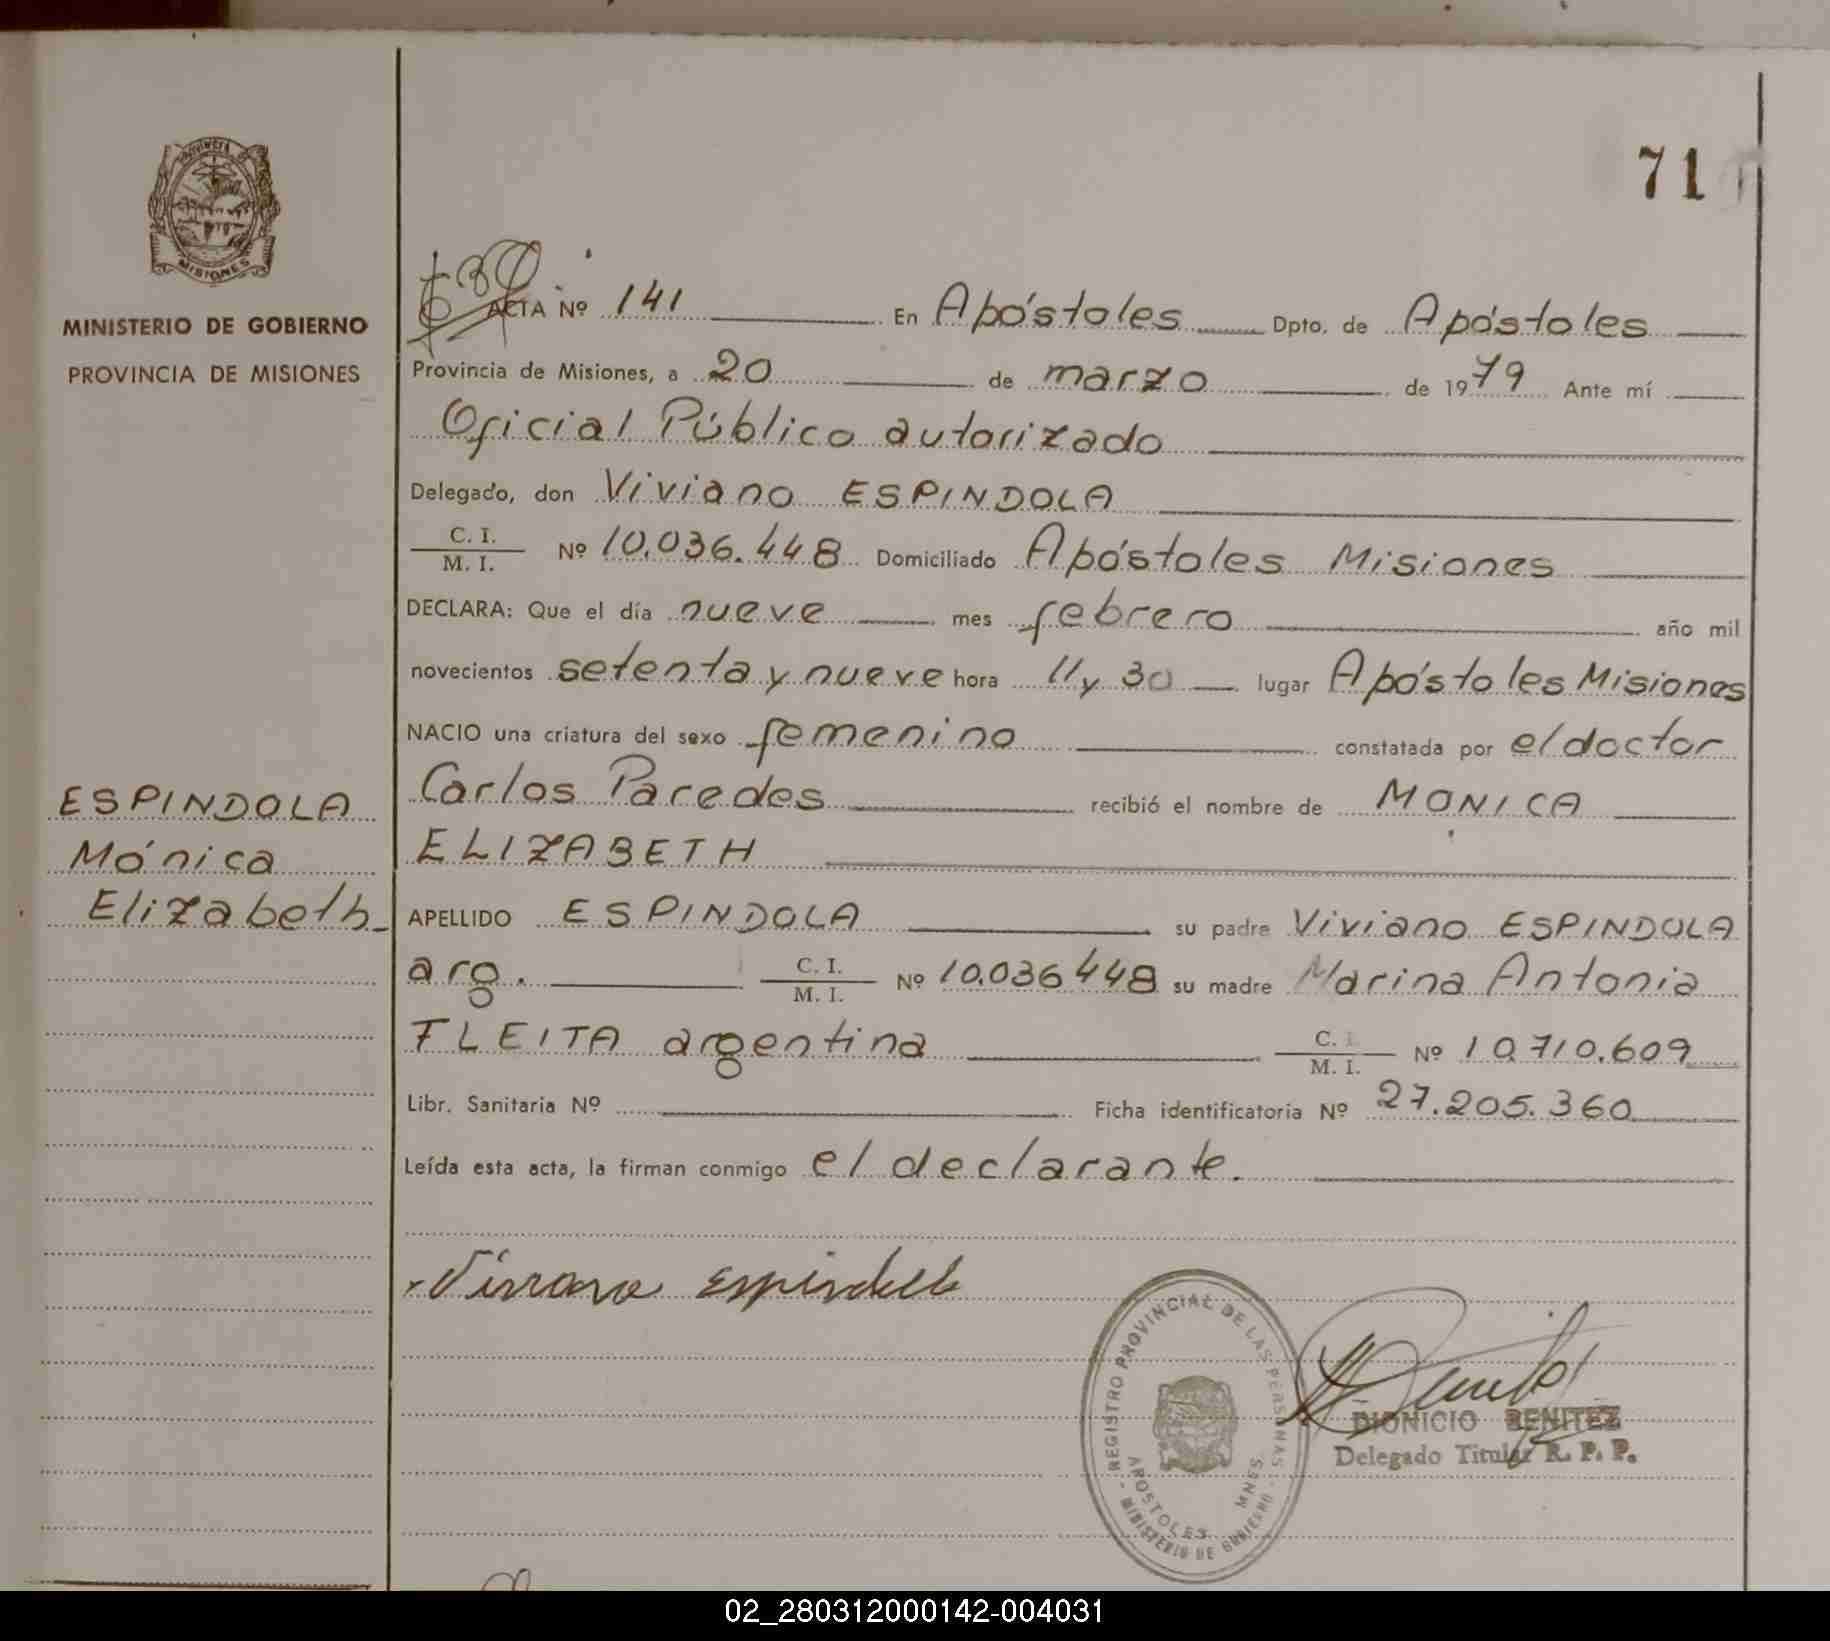 71
PROVINCIA DE
MISIONES
MINISTERIO DE GOBIERNO
PROVINCIA DE MISIONES
ACTA Nº 141 En Apóstoles Dpto. de Apóstoles
Provincia de Misiones, a 20 de marzo de 1979 Ante mí
Oficial Público autorizado
Delegado, don Viviano ESPINDOLA
C. I.
M. I. Nº 10.036.448 Domiciliado Apóstoles Misiones
DECLARA: Que el día nueve mes febrero año mil
novecientos setenta y nueve hora 11 y 30 lugar Apóstoles Misiones
NACIO una criatura del sexo femenino constatada por el doctor
Carlos Paredes recibió el nombre de MONICA
ELIZABETH
ESPINDOLA
Mónica
Elizabeth
APELLIDO ESPINDOLA su padre Viviano ESPINDOLA
arg. C. I.
M. I. Nº 10.036448 su madre Marina Antonia
FLEITA argentina C. I.
M. I. Nº 10.710.609
Libr. Sanitaria Nº Ficha identificatoria Nº 27.205.360
Leída esta acta, la firman conmigo el declarante.
REGISTRO PROVINCIAL DE LAS PERSONAS
APOSTOLES MNES.
MINISTERIO DE GOBIERNO
DIONICIO BENITEZ
Delegado Titular R. P. P.
02_280312000142-004031